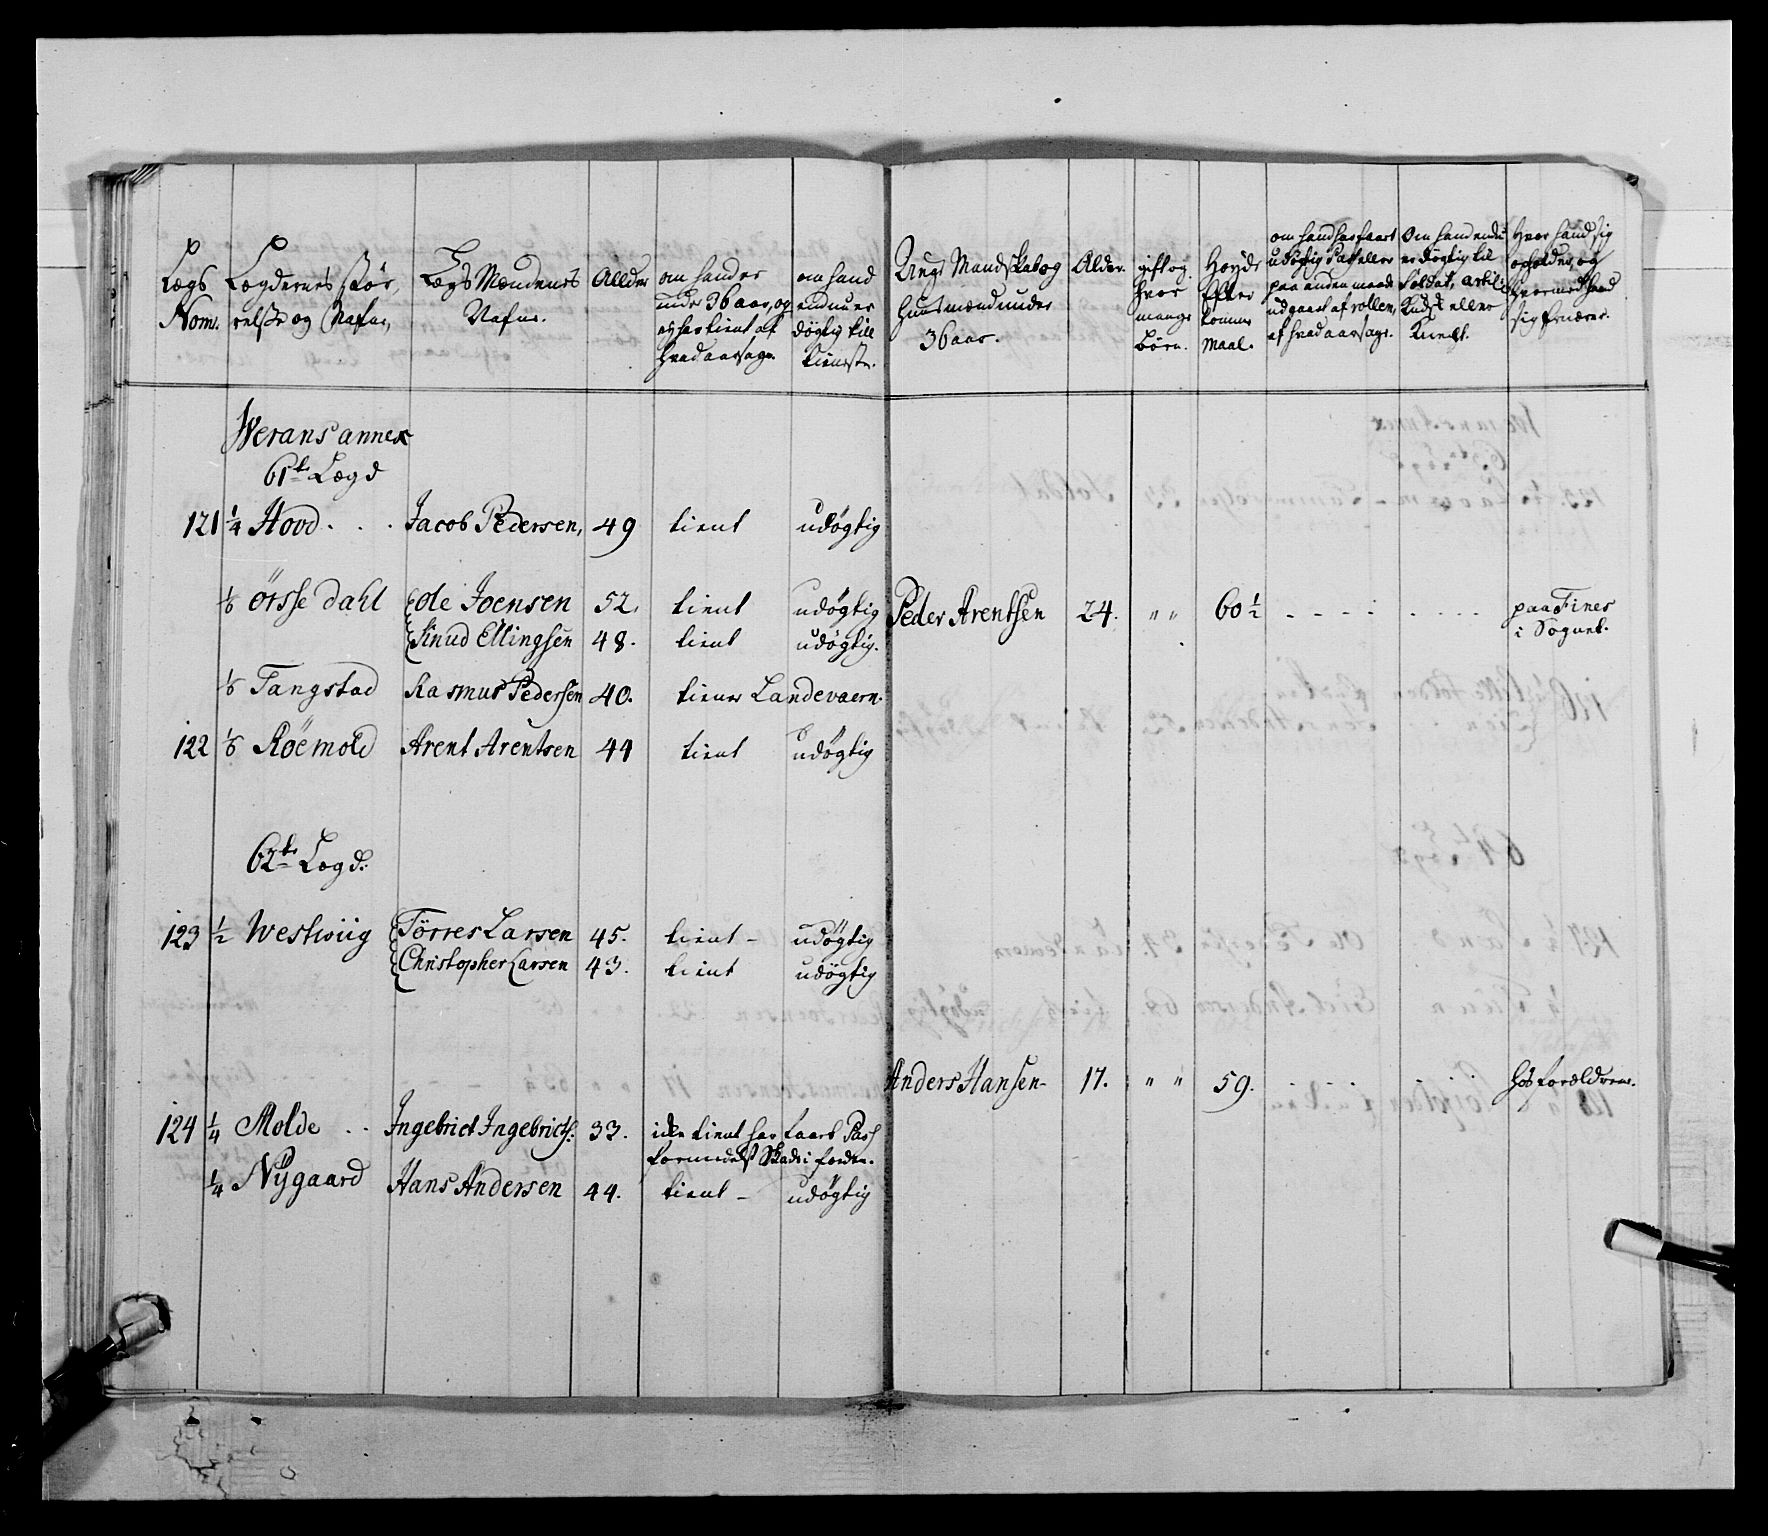 Lægs
Nom.
Lægdernes stør,
relse og Nafne,
Lægs Mændenes
Nafne.
Allder
om hand er
under 36 aar, og
ey har tient af
hvad aarsage
om hand
endnu er
døgtig till
tieneste.
Ungt Mandskab og
Huusmænd under
36 aar.
Alder.
gift og
hvor
mange
børn.
Høyde
Efter
tomme
Maal.
om hand har faaet
udøgtig Pas eller
paa anden maade
udgaaet af rollen,
af hvad aarsage.
Om hand endnu
er døgtig til
Soldat, artille
Kudsk eller
Knegt.
Hvor hand sig
opholder, og
hvormed hand
sig ernærer.
Werans annex
61te Lægd
121 1/4 Hovd . . . Jacob Pedersen, 49 tient udøgtig
1/8 Örsse dahl Ole Joensen 52. tient udøgtig Peder Arentsen 24. " " 60 1/2 - - - - - - - - paa Fines
Knud Ellingsen 48. tient udøgtig. i Sognet.
1/8 Tangstad Rasmus Pedersen 40. tiener Landevaern.
122 1/8 Röemold Arent Arentsen 44 tient udøgtig
62te Lægd:
123 1/2 Westwiig Törres Larsen 45. tient - udøgtig
Christopher Larsen 43. tient udøgtig
Anders Hansen - 17. " " 59. - - - - - - hos forældrene.
124 1/4 Molde . . Ingebrict Ingebricts. 33. icke tient har faaet Pass
formedelst Skade i foeden.
1/4 Nÿgaard Hans Andersen 44. tient - udøgtig